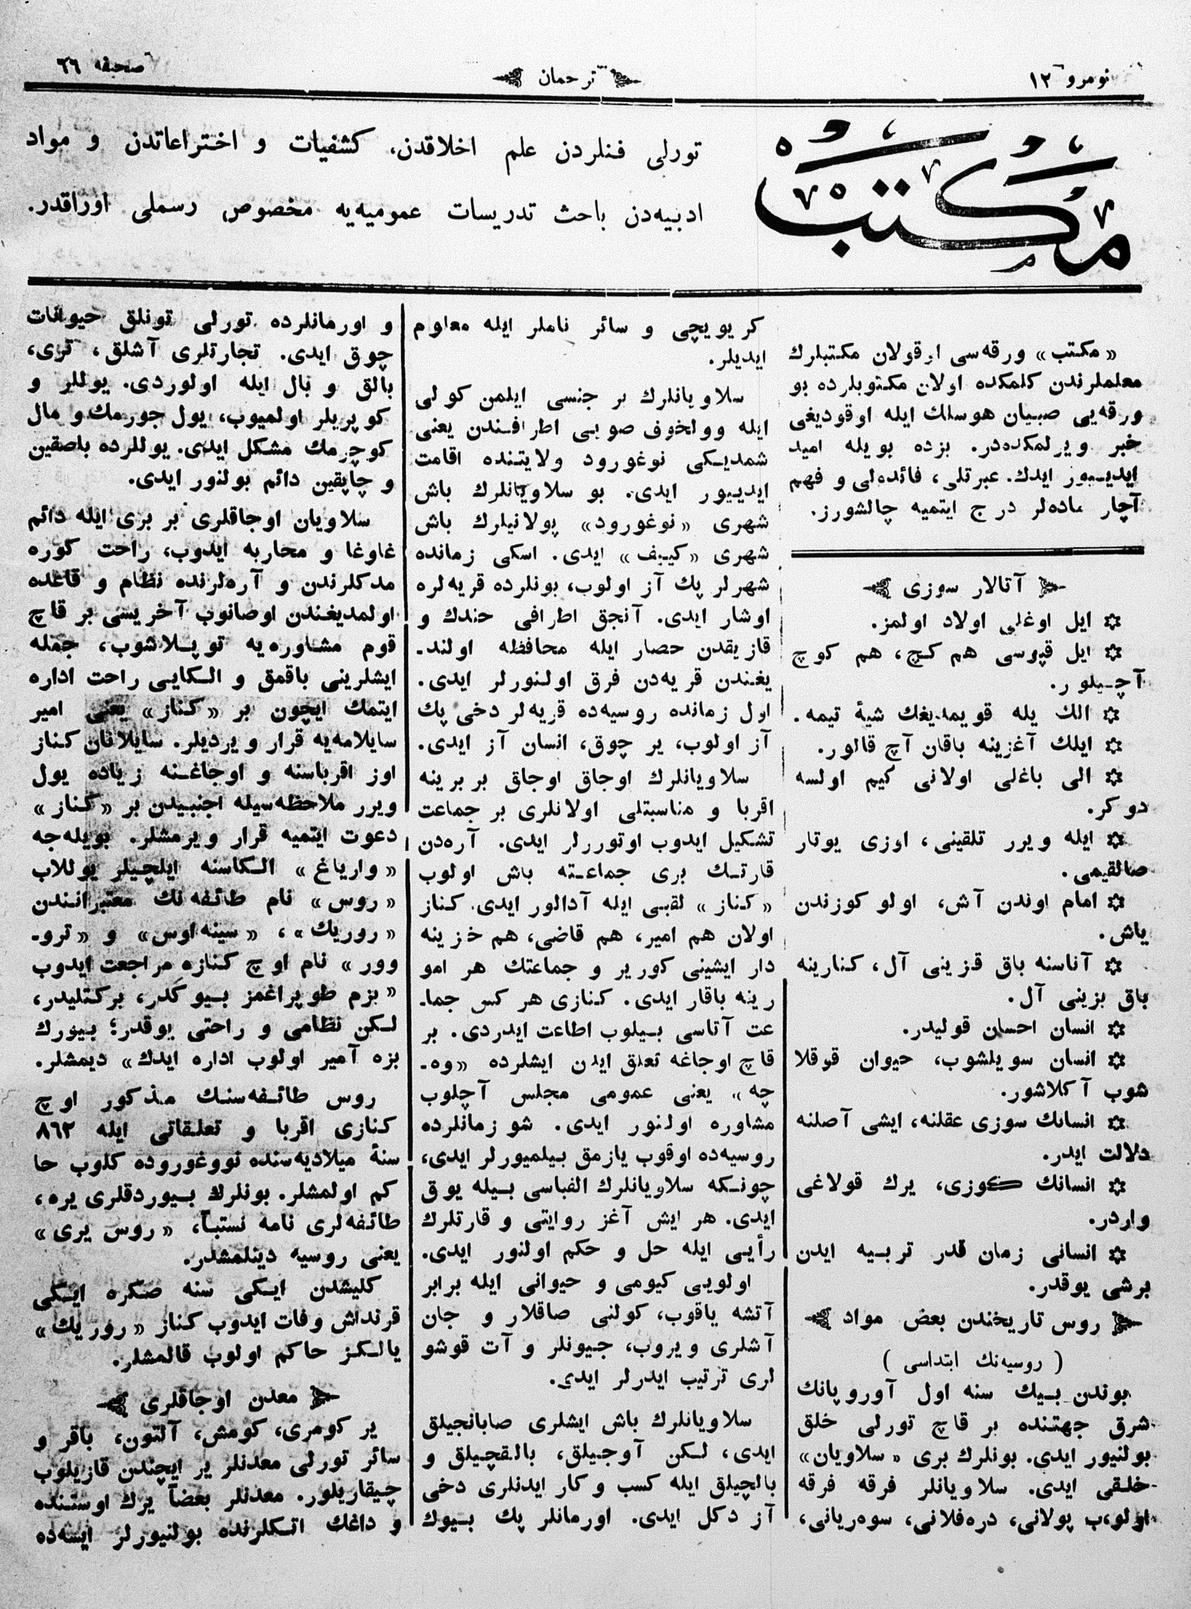 نومرو ١٢
ترجمان
صحیفه ٦٦
مكتب
تورلی فنلردن علم اخلاقدن، كشفیات و اختراعاتدن و مواد
ادبیه‌دن باحث تدریسات عمومیه‌یه مخصوص رسملی اوراقدر.
«مكتب» ورقه‌سی اوقولان مكتبلرك
معلملرندن كلمكده اولان مكتوبلرده بو
ورقه‌یی صبیان هوسلك ایله اوقودیغی
خبر ویرلمكده‌در. بزده بویله امید
ایدییور ایدك. عبرتلی، فائده‌لی و فهم
آچار ماده‌لر درج ایتمیه چالشورز.
آتالار سوزی
✡ ایل اوغلی اولاد اولمز.
✡ ایل قپوسی هم كچ، هم كوچ
آچیلور.
✡ الك یله قویمدیغك شیۀ تیمه.
✡ ایلك آغزینه باقان آچ قالور.
✡ الی باغلی اولانی كیم اولسه
دوكر.
✡ ایله ویرر تلقینی، اوزی یوتار
صالقیمی.
✡ امام اوندن آش، اولو كوزندن
یاش.
✡ آناسنه باق قزینی آل، كنارینه
باق بزینی آل.
✡ انسان احسان قولیدر.
✡ انسان سویلشوب، حیوان قوقلا
شوب آكلاشور.
✡ انسانك سوزی عقلنه، ایشی آصلنه
دلالت ایدر.
✡ انسانك كوزی، یرك قولاغی
واردر.
✡ انسانی زمان قدر تربیه ایدن
برشی یوقدر.
روس تاریخندن بعض مواد
( روسیه‌نك ابتداسی )
بوندن بیك سنه اول آوروپانك
شرق جهتنده بر قاچ تورلی خلق
بولنیور ایدی. بونلرك بری «سلاویان»
خلقی ایدی. سلاویانلر فرقه فرقه
اولوب پولانی، دره‌فلانی، سوه‌ریانی،
كریویچی و سائر ناملر ایله معلوم
ایدیلر.
سلاویانلرك بر جنسی ایلمن كولی
ایله وولخوف صویی اطرافندن یعنی
شمدیكی نوغورود ولایتنده اقامت
ایدییور ایدی. بو سلاویانلرك باش
شهری «نوغورود» پولانیلرك باش
شهری «كییف» ایدی. اسكی زمانده
شهرلر پك آز اولوب، بونلرده قریه‌لره
اوشار ایدی. آنجق اطرافی خندك و
قازیقدن حصار ایله محافظه اولند.
یغندن قریه‌دن فرق اولنورلر ایدی.
اول زمانده روسیه‌ده قریه‌لر دخی پك
آز اولوب، یر چوق، انسان آز ایدی.
سلاویانلرك اوجاق اوجاق بربرینه
اقربا و مناسبتلی اولانلری بر جماعت
تشكیل ایدوب اوتوررلر ایدی. آره‌دن
قارتك بری جماعته باش اولوب
«كناز» لقبی ایله آدالور ایدی. كناز
اولان هم امیر، هم قاضی، هم خزینه
دار ایشینی كوریر و جماعتك هر امو
رینه باقار ایدی. كنازی هركس جما‌ـ
عت آتاسی بیلوب اطاعت ایدردی. بر
قاچ اوجاغه تعلق ایدن ایشلرده «وه‌ـ
چه» یعنی عمومی مجلس آچلوب
مشاوره اولنور ایدی. شو زمانلرده
روسیه‌ده اوقوب یازمق بیلمیورلر ایدی،
چونكه سلاویانلرك الفباسی بیله یوق
ایدی. هر ایش آغز روایتی و قارتلرك
رأیی ایله حل و حكم اولنور ایدی.
اولویی كیومی و حیوانی ایله برابر
آتشه یاقوب، كولنی صاقلار و جان
آشلری ویروب، جیونلر و آت قوشو
لری ترتیب ایدرلر ایدی.
سلاویانلرك باش ایشلری صابانجیلق
ایدی، لكن آوجیلق، بالقچیلق و
بالچیلق ایله كسب و كار ایدنلری دخی
آز دكل ایدی. اورمانلر پك بیوك
و اورمانلرده تورلی تونلق حیوانات
چوق ایدی. تجارتلری آشلق، تری،
بالق و بال ایله اولوردی. یوللر و
كوپریلر اولمیوب، یول جورمك و مال
كوچرمك مشكل ایدی. یوللرده باصقین
و چاپقین دائم بولنور ایدی.
سلاویان اوجاقلری بر بری ایله دائم
غاوغا و محاربه ایدوب، راحت كوره
مدكلرندن و آره‌لرنده نظام و قاعده
اولمدیغندن اوصانوب آخریسی بر قاچ
قوم مشاوره‌یه توپلاشوب، جمله
ایشلرینی باقمق و الكایی راحت اداره
ایتمك ایچون بر «كناز» یعنی امیر
سایلامه‌یه قرار ویردیلر. سایلانان كناز
اوز اقرباسنه و اوجاغنه زیاده یول
ویرر ملاحظه‌سیله اجنبیدن بر «كناز»
دعوت ایتمیه قرار ویرمشلر. بویله‌جه
«واریاغ» الكاسنه ایلچیلر یوللاب
«روس» نام طائفه‌نك معتبرانندن
«روریك»، «سینه‌اوس» و «ترو‌ـ
وور» نام اوچ كنازه مراجعت ایدوب
«بزم طوپراغمز بیوكدر، بركتلیدر،
لكن نظامی و راحتی یوقدر؛ بیورك
بزه آمیر اولوب اداره ایدك» دیمشلر.
روس طائفه‌سنك مذكور اوچ
كنازی اقربا و تعلقاتی ایله ٨٦٢
سنۀ میلادیه‌سنده نووغوروده كلوب حا
كم اولمشلر. بونلرك بیوردقلری یره،
طائفه‌لری نامه نسبتاً، «روس یری»
یعنی روسیه دینلمشلر.
كلیشدن ایكی سنه صكره ایكی
قرنداش وفات ایدوب كناز «روریك»
یالكز حاكم اولوب قالمشلر.
معدن اوجاقلری
یر كومری، كومش، آلتون، باقر و
سائر تورلی معدنلر یر ایچندن قازیلوب
چیقاریلور. معدنلر بعضاً یرك اوستنده
و داغك اتكلرنده بولنیورلر ایسه‌ده